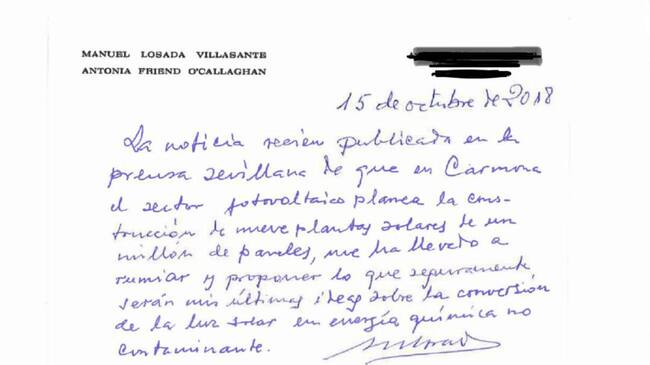 MANUEL LOSADA VILLASANTE
ANTONIA FRIEND O'CALLAGHAN
15 de octubre de 2018
La noticia recién publicada en la
prensa sevillana de que en Carmona
el sector fotovoltaico planea la cons-
trucción de nueve plantas solares de un
millón de paneles, me ha llevado a
rumiar y proponer lo que seguramente
serán mis últimas ideas sobre la conversión
de la luz solar en energía química no
contaminante.